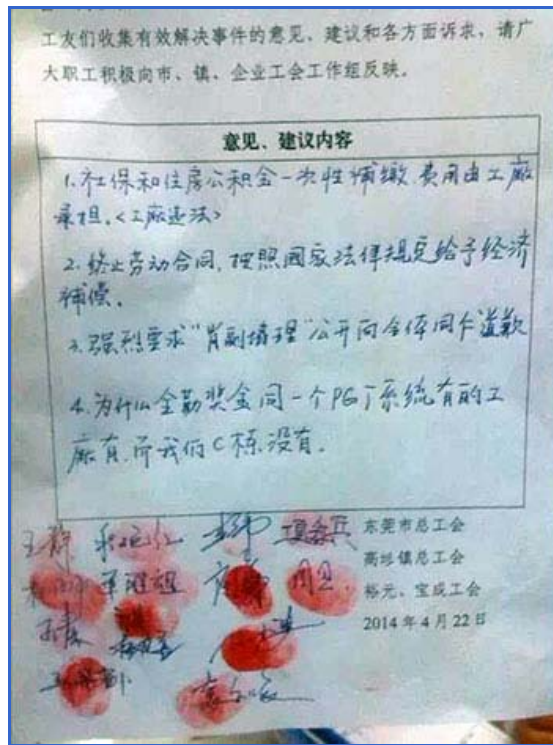 工友们收集有效解决事件的意见、建议和各方面诉求，请广
大职工积极向市、镇、企业工会工作组反映。
意见、建议内容
1.社保和住房公积金一次性补缴.费用由工厂
承担.<工厂违法>
2.终止劳动合同,按照国家法律规定给予经济
补偿.
3.强烈要求"肖副搞理"公开向全体同仁道歉
4.为什么全勤奖金同一个PG丁系统有的工
厂有.而我们C栋没有.
东莞市总工会
高埗镇总工会
裕元、宝成工会
2014年4月22日